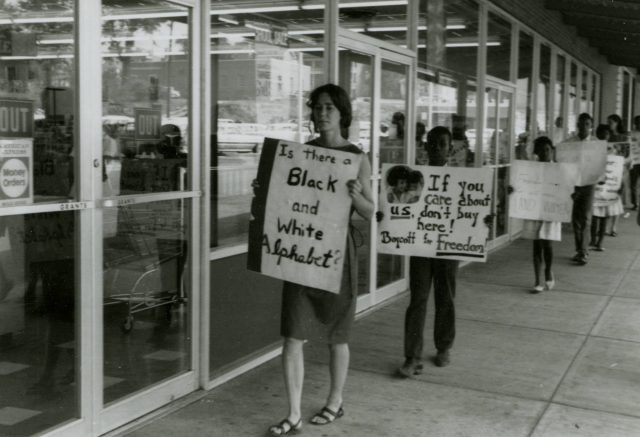 OUT
Money
Orders
OUT
GRANTS
Is there a
Black
and
White
Alphabet?
If you
care about
us, don't buy
here!
Boycott for Freedom